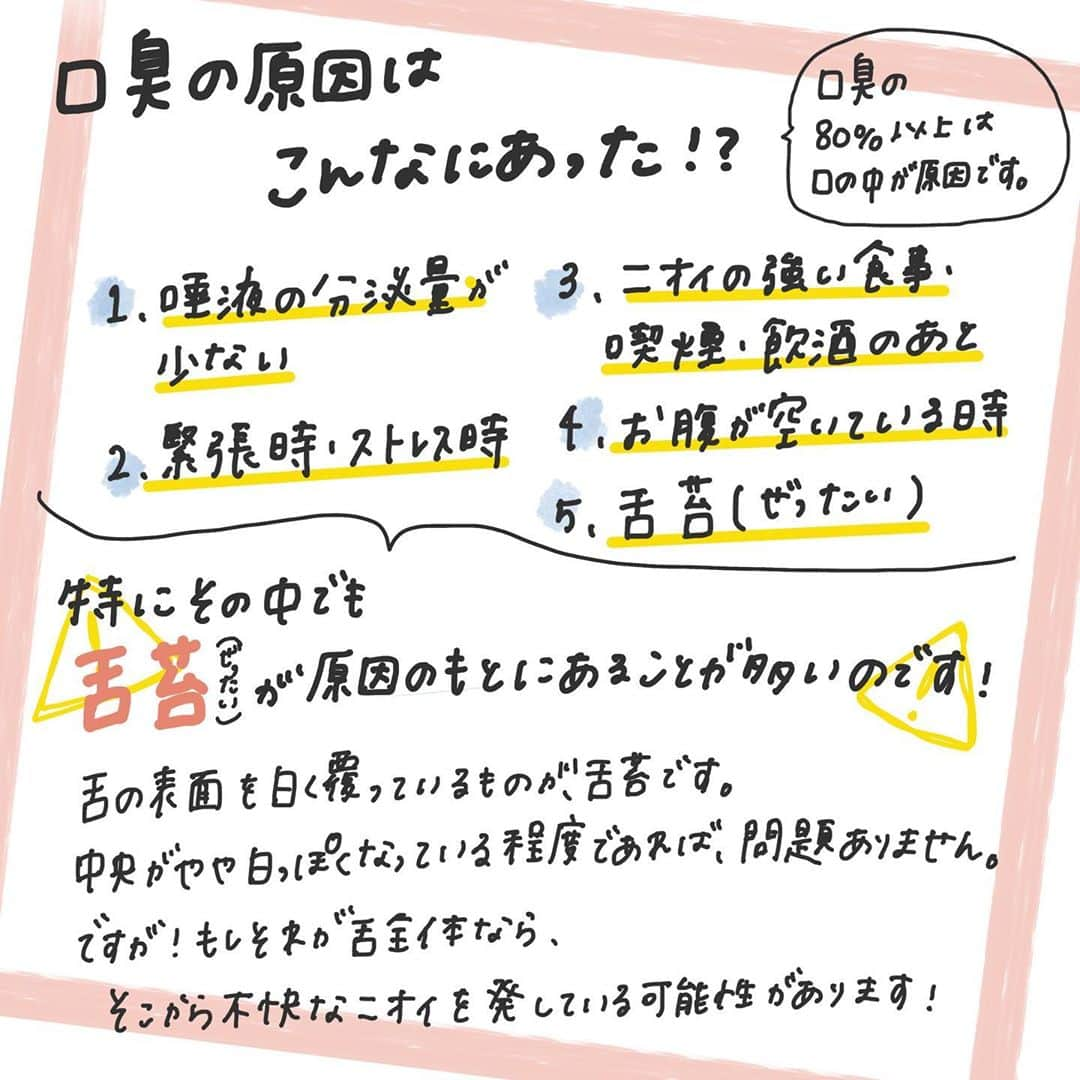 口臭の原因は
こんなにあった!?
口臭の
80%以上は
口の中が原因です。
1、唾液の分泌量が
少ない
2、緊張時・ストレス時
3、ニオイの強い食事・
喫煙・飲酒のあと
4、お腹が空いている時
5、舌苔(ぜったい)
特にその中でも
舌苔(ぜったい)が原因のもとにあることが多いのです!
舌の表面を白く覆っているものが、舌苔です。
中央がやや白っぽくなっている程度であれば、問題ありません。
ですが!もしそれが舌全体なら、
そこから不快なニオイを発している可能性があります!